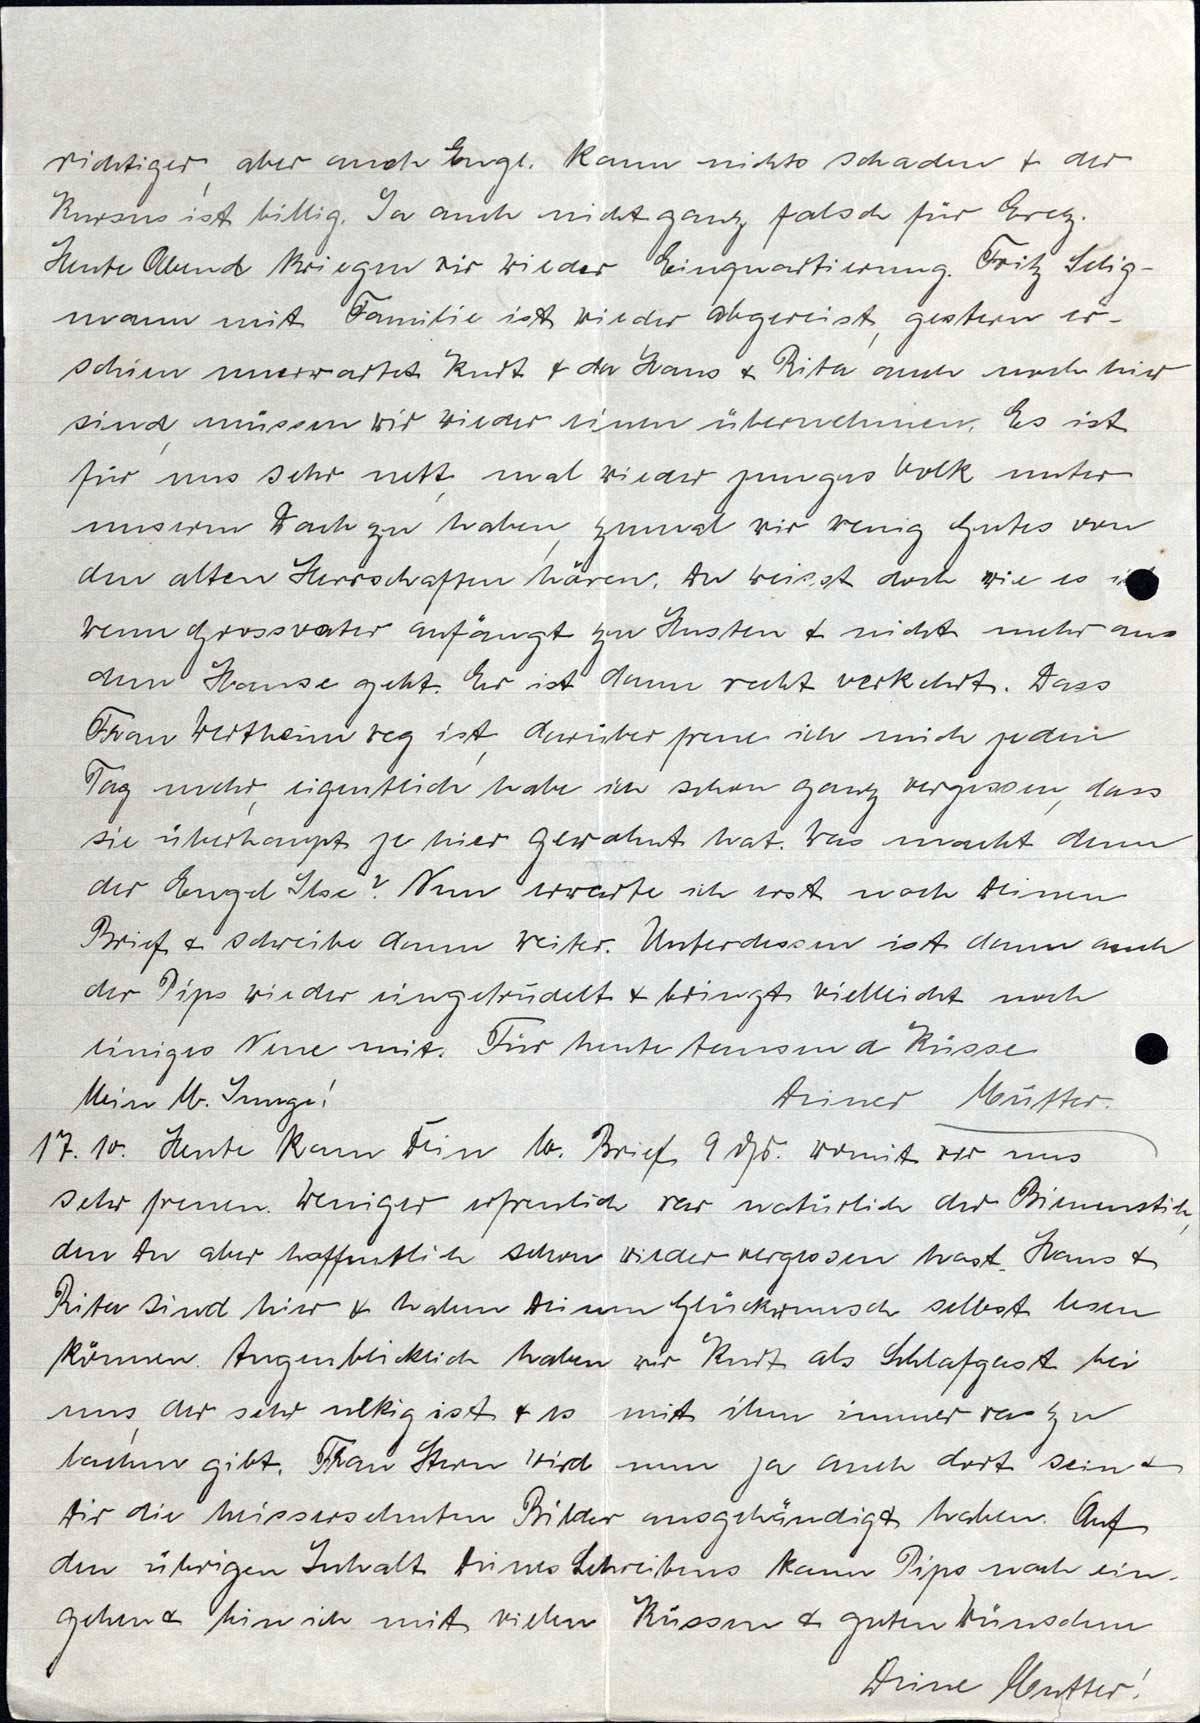 richtiger, aber auch Engl. kann nichts schaden & der
Kursus ist billig. Ja auch nicht ganz falsch für Erez.
Heute Abend kriegen wir wieder Einquartierung. Fritz Selig-
mann mit Familie ist wieder abgereist, gestern er-
schien unerwartet Kurt & da Hans & Rita auch noch hier
sind, müssen wir wieder einen übernehmen. Es ist
für uns sehr nett, mal wieder junges Volk unter
unserm Dach zu haben, zumal wir wenig Gutes von
den alten Herrschaften hören. Du weisst doch wie es
wenn Grossvater anfängt zu Husten & nicht mehr aus
dem Hause geht. Er ist dann recht verkehrt. Dass
Frau Wertheim weg ist, darüber freue ich mich jeden
Tag mehr, eigentlich habe ich schon ganz vergessen, dass
sie überhaupt je hier gewohnt hat. Was macht denn
der Engel Ilse? Nun erwarte ich erst noch Deinen
Brief & schreibe dann weiter. Unterdessen ist dann auch
der Pips wieder eingetrudelt & bringt vielleicht noch
einiges Neue mit. Für heute tausend Küsse
Deiner Mutter.
Mein lb. Junge!
17.10. Heute kam Dein lb. Brief 9 ds. womit wir uns
sehr freuen. Weniger erfreulich war natürlich der Bienenstich,
den Du aber hoffentlich schon wieder vergessen hast. Hans &
Rita sind hier & haben Deinen Glückwunsch selbst lesen
können. Augenblicklich haben wir Kurt als Schlafgast bei
uns, der sehr ulkig ist & es mit ihm immer was zu
lachen gibt. Frau Stern wird nun ja auch dort sein &
Dir die heissersehnten Bilder ausgehändigt haben. Auf
den übrigen Inhalt Deines Schreibens kann Pips noch ein-
gehen & bin ich mit vielen Küssen & guten Wünschen
Deine Mutter!